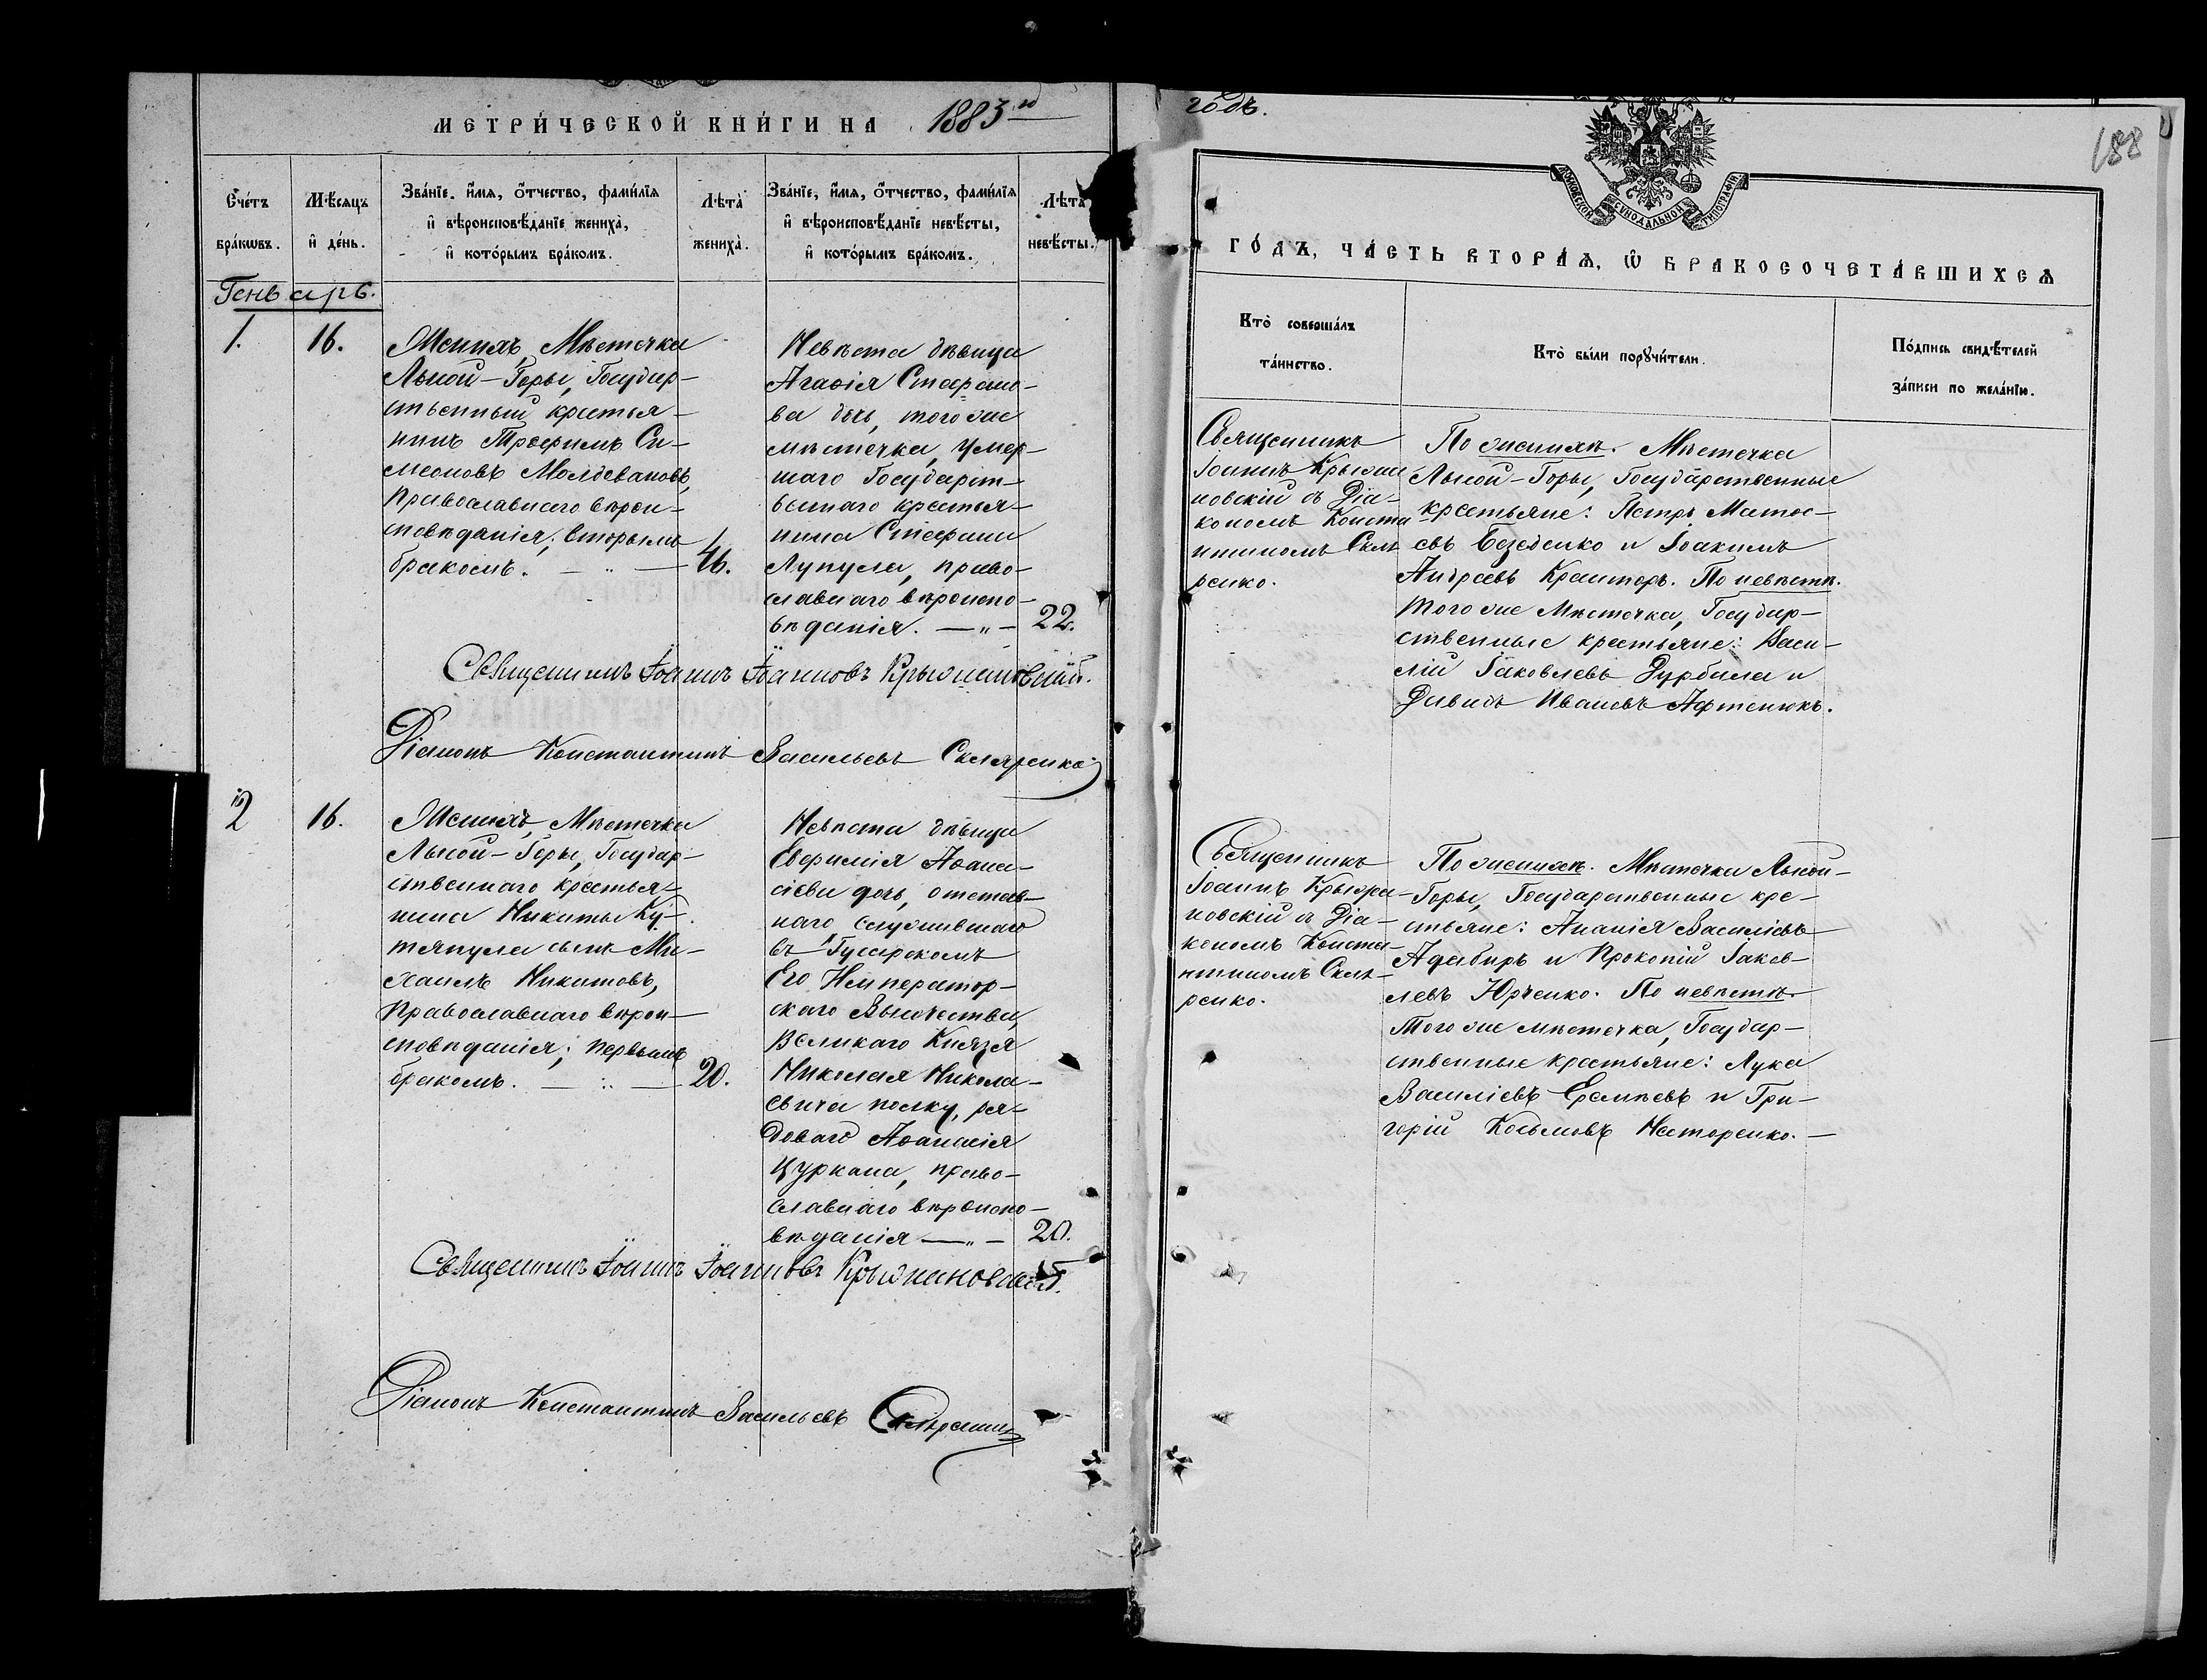 МЕТРИ́ЧЕСКОЙ КНИ́ГИ НА 1883й
годъ.
188
МОСКОВСКОЙ СѴНОДАЛЬНОЙ ТИПОГРАФІИ
ГО́ДЪ, ЧА́СТЬ ВТОРА́Ѧ, Ѡ БРАКОСОЧЕТА́ВШИХСѦ
Сче́тъ
бра́кѡвъ.
Мѣ́сяцъ
и҆ де́нь.
Зва́нїе, и҆́мѧ, ѻ҆́тчество, фами́лїѧ
и҆ вѣроисповѣ́данїе жениха̀,
и҆ кото́рымъ бра́комъ.
Лѣта̀
жениха̀.
Зва́нїе, и҆́мѧ, ѻ҆́тчество, фами́лїѧ
и҆ вѣроисповѣ́данїе невѣ́сты,
и҆ кото́рымъ бра́комъ.
Лѣта̀
невѣ́сты.
Кто̀ соверша́лъ
та́инство.
Кто̀ бы́ли порꙋчи́тели.
По́дпись свидѣ́телей
за́писи по жела́нїю.
Генварь.
1.
16.
Женихъ, Мѣстечка
Лысой-Горы, Государ-
ственный крестья-
нинъ Трофимъ Си-
меоновъ Молдовановъ,
Православнаго вѣрои-
сповѣданія; вторымъ
бракомъ. — „ —
46.
Невѣста дѣвица
Агафія Стефано-
ва дочь, того же
мѣстечка, умер-
шаго Государст-
веннаго крестья-
нина Стефана
Лупула, право-
славнаго вѣроиспо-
вѣданія. — „ —
22.
Священникъ
Іоаннъ Крыжа-
новскій съ Діа-
кономъ Конста-
нтиномъ Скля-
ренко.
По женихѣ. Мѣстечка
Лысой-Горы, Государственные
крестьяне: Петръ Матѳе-
евъ Безденко и Іоакимъ
Андреевъ Кранторъ. По невѣстѣ.
Того же Мѣстечка, Государ-
ственные крестьяне: Васи-
лій Іаковлевъ Дурбала и
Давидъ Ивановъ Афтенюкъ.
Священникъ Іоаннъ Іоанновъ Крыжановскій.
Діаконъ Константинъ Васильевъ Скляренко
2
16.
Женихъ, Мѣстечка
Лысой-Горы, Государ-
ственнаго крестья-
нина Никиты Ку-
тяпула сынъ Ми-
хаилъ Никитовъ,
Православнаго вѣрои-
сповѣданія; первымъ
бракомъ. — „ —
20.
Невѣста дѣвица
Евфимія Аѳана-
сіева дочь, отстав-
наго, служившаго
въ Гусарскомъ
Его Император-
скаго Высочества,
Великаго Князя
Николая Никола-
евича полку, ря-
доваго Аѳанасія
Цуркана, право-
славнаго вѣроиспо-
вѣданія — „ —
20.
Священникъ
Іоаннъ Крыжа-
новскій съ Діа-
кономъ Конста-
нтиномъ Скля-
ренко.
По женихѣ. Мѣстечка Лысой-
Горы, Государственные кре-
стьяне: Ананія Василіевъ
Адабиръ и Прокопій Іаков-
левъ Юрченко. По невѣстѣ.
Того же мѣстечка, Государ-
ственные крестьяне: Лука
Василіевъ Еремѣевъ и Гри-
горій Косьмовъ Несторенко. —
Священникъ Іоаннъ Іоанновъ Крыжановскій.
Діаконъ Константинъ Васильевъ Скляренко